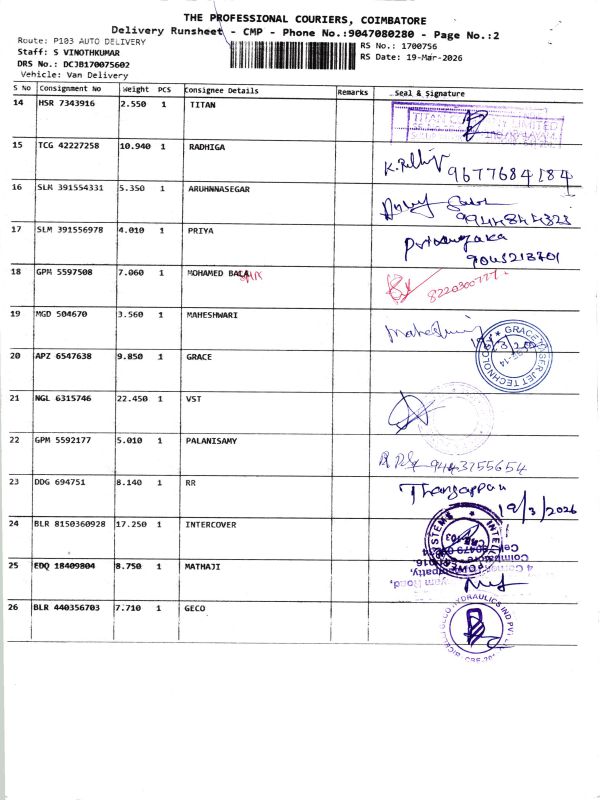 THE PROFESSIONAL COURIERS, COIMBATORE
Delivery Runsheet - CMP - Phone No.:9047080280 - Page No.:2
Route: P103 AUTO DELIVERY
RS No.: 1700756
Staff: S VINOTHKUMAR
RS Date: 19-Mar-2026
DRS No.: DCJB170075602
Vehicle: Van Delivery
S No Consignment No Weight PCS Consignee Details Remarks Seal & Signature
14 HSR 7343916 2.550 1 TITAN
TITAN LIMITED
15 TCG 42227258 10.940 1 RADHIGA
9677684184
16 SLM 391554331 5.350 1 ARUHNNASEGAR
9944844323
17 SLM 391556978 4.010 1 PRIYA
Priyangaka
9043213701
18 GPM 5597508 7.060 1 MOHAMED BALA
8220300777
19 MGD 504670 3.560 1 MAHESHWARI
20 APZ 6547638 9.850 1 GRACE
GRACE LASER JET TECHNOLOGY
21 NGL 6315746 22.450 1 VST
22 GPM 5592177 5.010 1 PALANISAMY
9443755654
23 DDG 694751 8.140 1 RR
Thangappan
19/3/2026
24 BLR 8150360928 17.250 1 INTERCOVER
25 EDQ 18409804 8.750 1 MATHAJI
26 BLR 440356703 7.710 1 GECO
GECO HYDRAULICS IND PVT